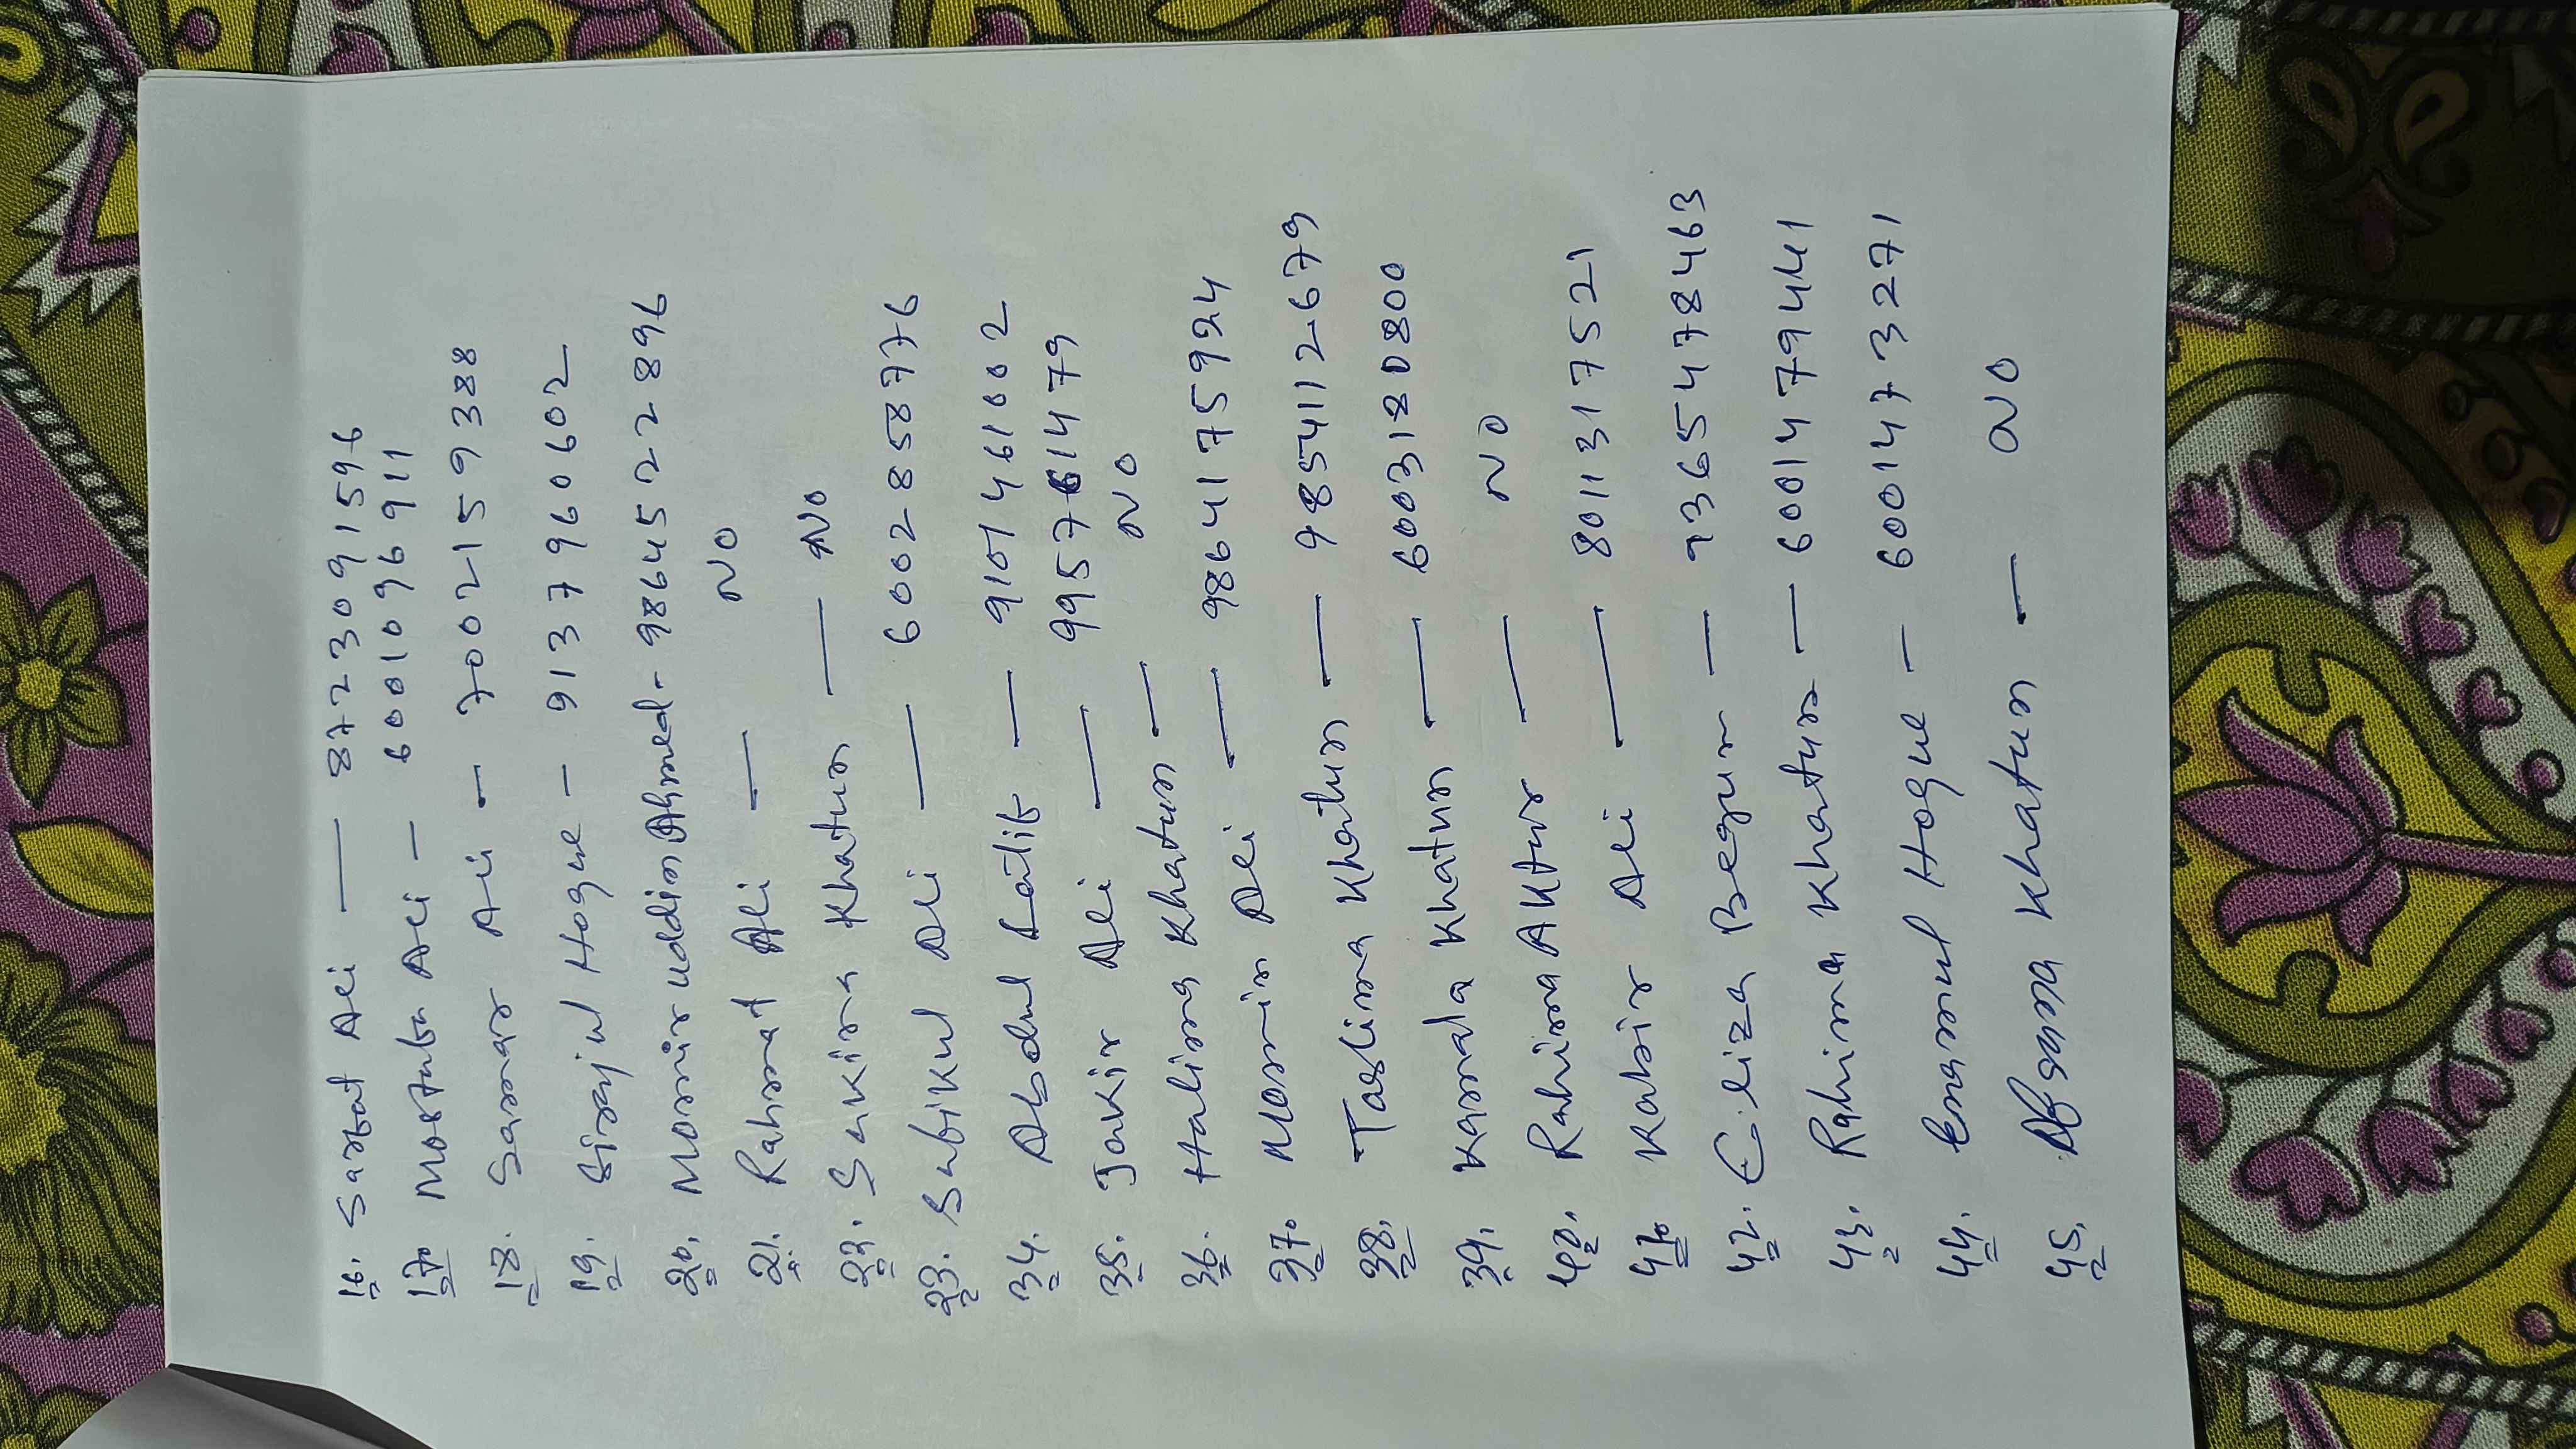 16. Sarbat Ali — 8723091596
17. Mostufa Ali — 6001096911
18. Samar Ali — 7002159388
19. Sirajul Hoque — 9137960602
20. Moniruddin Ahmed - 9864522896
21. Rahmat Ali — NO
22. Sukina Khatun — NO
23. Subikul Ali — 6002858776
34. Abdul Latib — 9101461002
35. Jakir Ali — 995761479
36. Halima Khatun — NO
37. Momin Ali — 9864175924
38. Taslima Khatun — 9854112679
39. Kamala Khatun — 6003120800
40. Rahima Aktur — NO
41. Kabir Ali — 8011317521
42. Eliza Begum — 9365478463
43. Rahima Khatun — 6001479441
44. Enamul Hoque — 6001473271
45. Afsana Khatun — NO